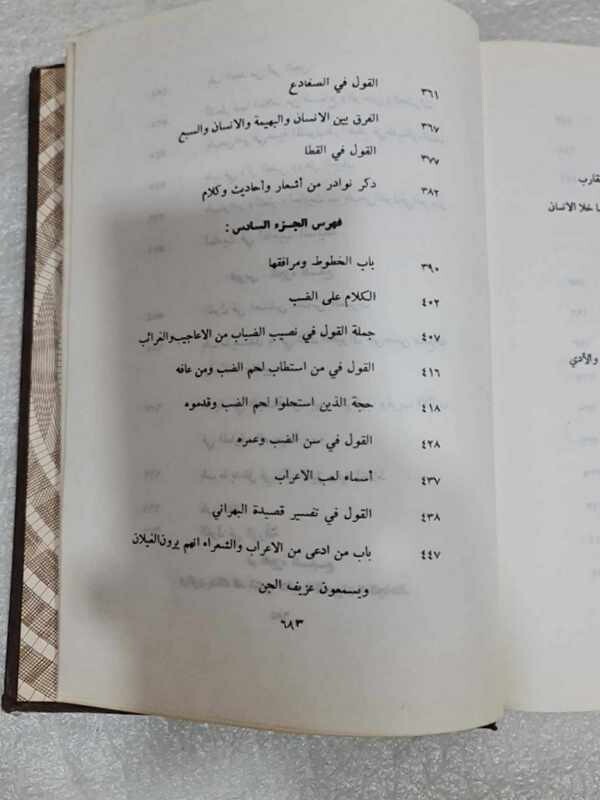 القول في الضفادع ٣٦١
الفرق بين الانسان والبهيمة والانسان والسبع ٣٦٧
القول في القطا ٣٧٧
ذكر نوادر من أشعار وأحاديث وكلام ٣٨٢
فهرس الجزء السادس :
باب الخطوط ومرافقها ٣٩٠
الكلام على الضب ٤٠٢
جملة القول في نصيب الضباب من الاعاجيب والغرائب ٤٠٧
القول في من استطاب لحم الضب ومن عافه ٤١٦
حجة الذين استحلوا لحم الضب وقدموه ٤١٨
القول في سن الضب وعمره ٤٢٨
أسماء لعب الاعراب ٤٣٧
القول في تفسير قصيدة البهراني ٤٣٨
باب من ادعى من الاعراب والشعراء انهم يرون الغيلان ٤٤٧
ويسمعون عزيف الجن
٦٨٣
خلا الانسان
والأدي